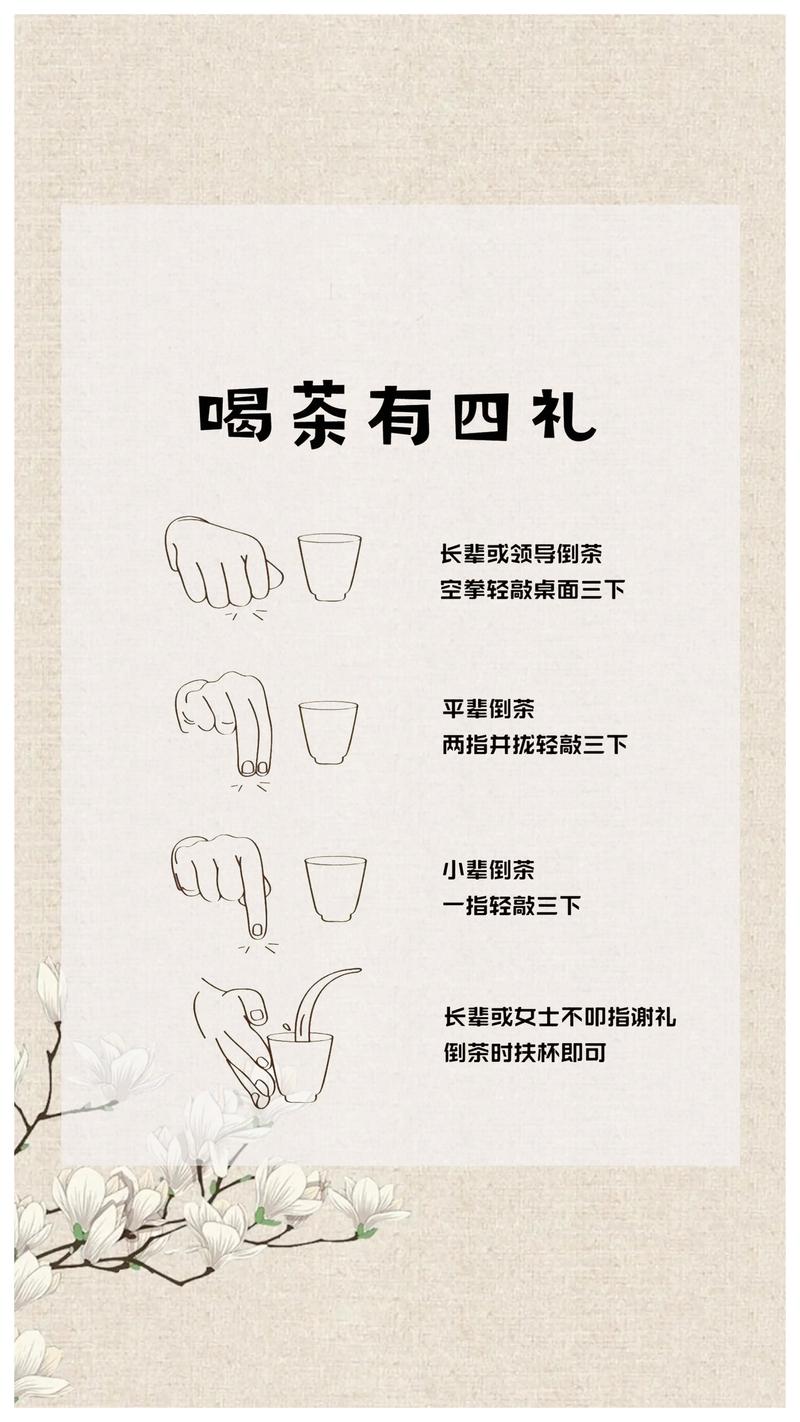 喝茶有四礼
长辈或领导倒茶
空拳轻敲桌面三下
平辈倒茶
两指并拢轻敲三下
小辈倒茶
一指轻敲三下
长辈或女士不叩指谢礼
倒茶时扶杯即可